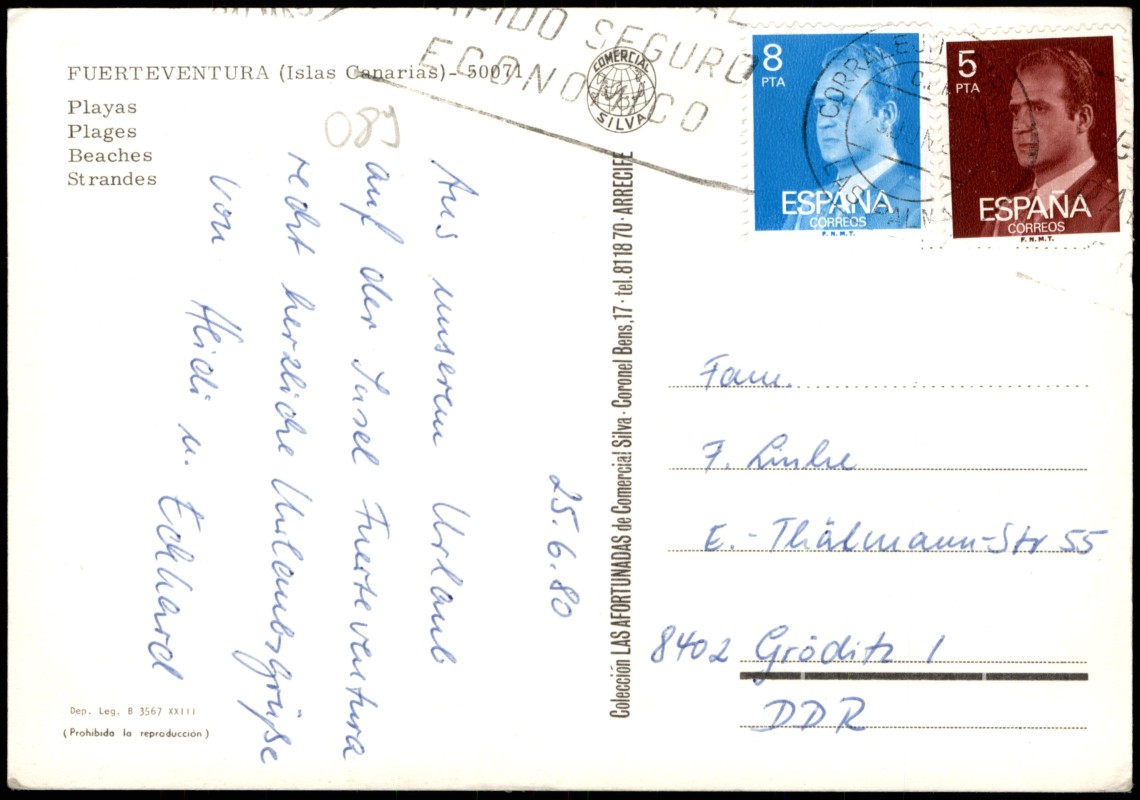 RAPIDO SEGURO
ECONOMICO
FUERTEVENTURA (Islas Canarias) - 50071
Playas
Plages
Beaches
Strandes
COMERCIAL
SILVA
8
PTA
ESPAÑA
CORREOS
F.N.M.T.
5
PTA
ESPAÑA
CORREOS
F.N.M.T.
CORRALEJO
LAS PALMAS
089
25.6.80
Aus unserem Urlaub
auf der Insel Fuerteventura
recht herzliche Urlaubsgrüße
von Heidi u. Eckhard
Colección LAS AFORTUNADAS de Comercial Silva · Coronel Bens, 17 · tel. 81 18 70 · ARRECIFE
Fam.
F. Linke
E.-Thälmann-Str 55
8402 Gröditz 1
DDR
Dep. Leg. B 3567 XXIII
(Prohibida la reproducción)